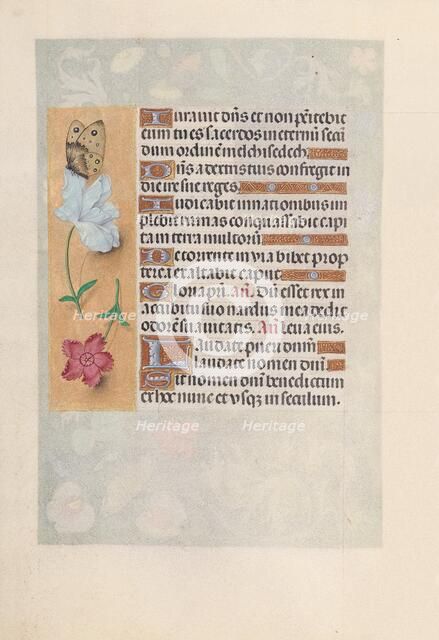 Iuravit dn̄s et non pēitebit
eum tu es sacerdos in eternū secū
dum ordinē melchisedech.
Dn̄s a dextris tuis confregit in
die ire sue reges.
Iudicabit in nationibus im
plebit ruinas conquassabit capi
ta in terra multorū.
De torrente in via bibet prop
terea exaltabit caput.
Gloria pr̄i. an̄. Dū esset rex in
accubitu suo nardus mea dedit
odorē suavitatis. An̄. Leva eius.
Laudate pueri dn̄m
laudate nomen dn̄i
Sit nomen dn̄i benedictum
ex hoc nunc et usq; in seculum.
Heritage
Heritage
Heritage
Heritage